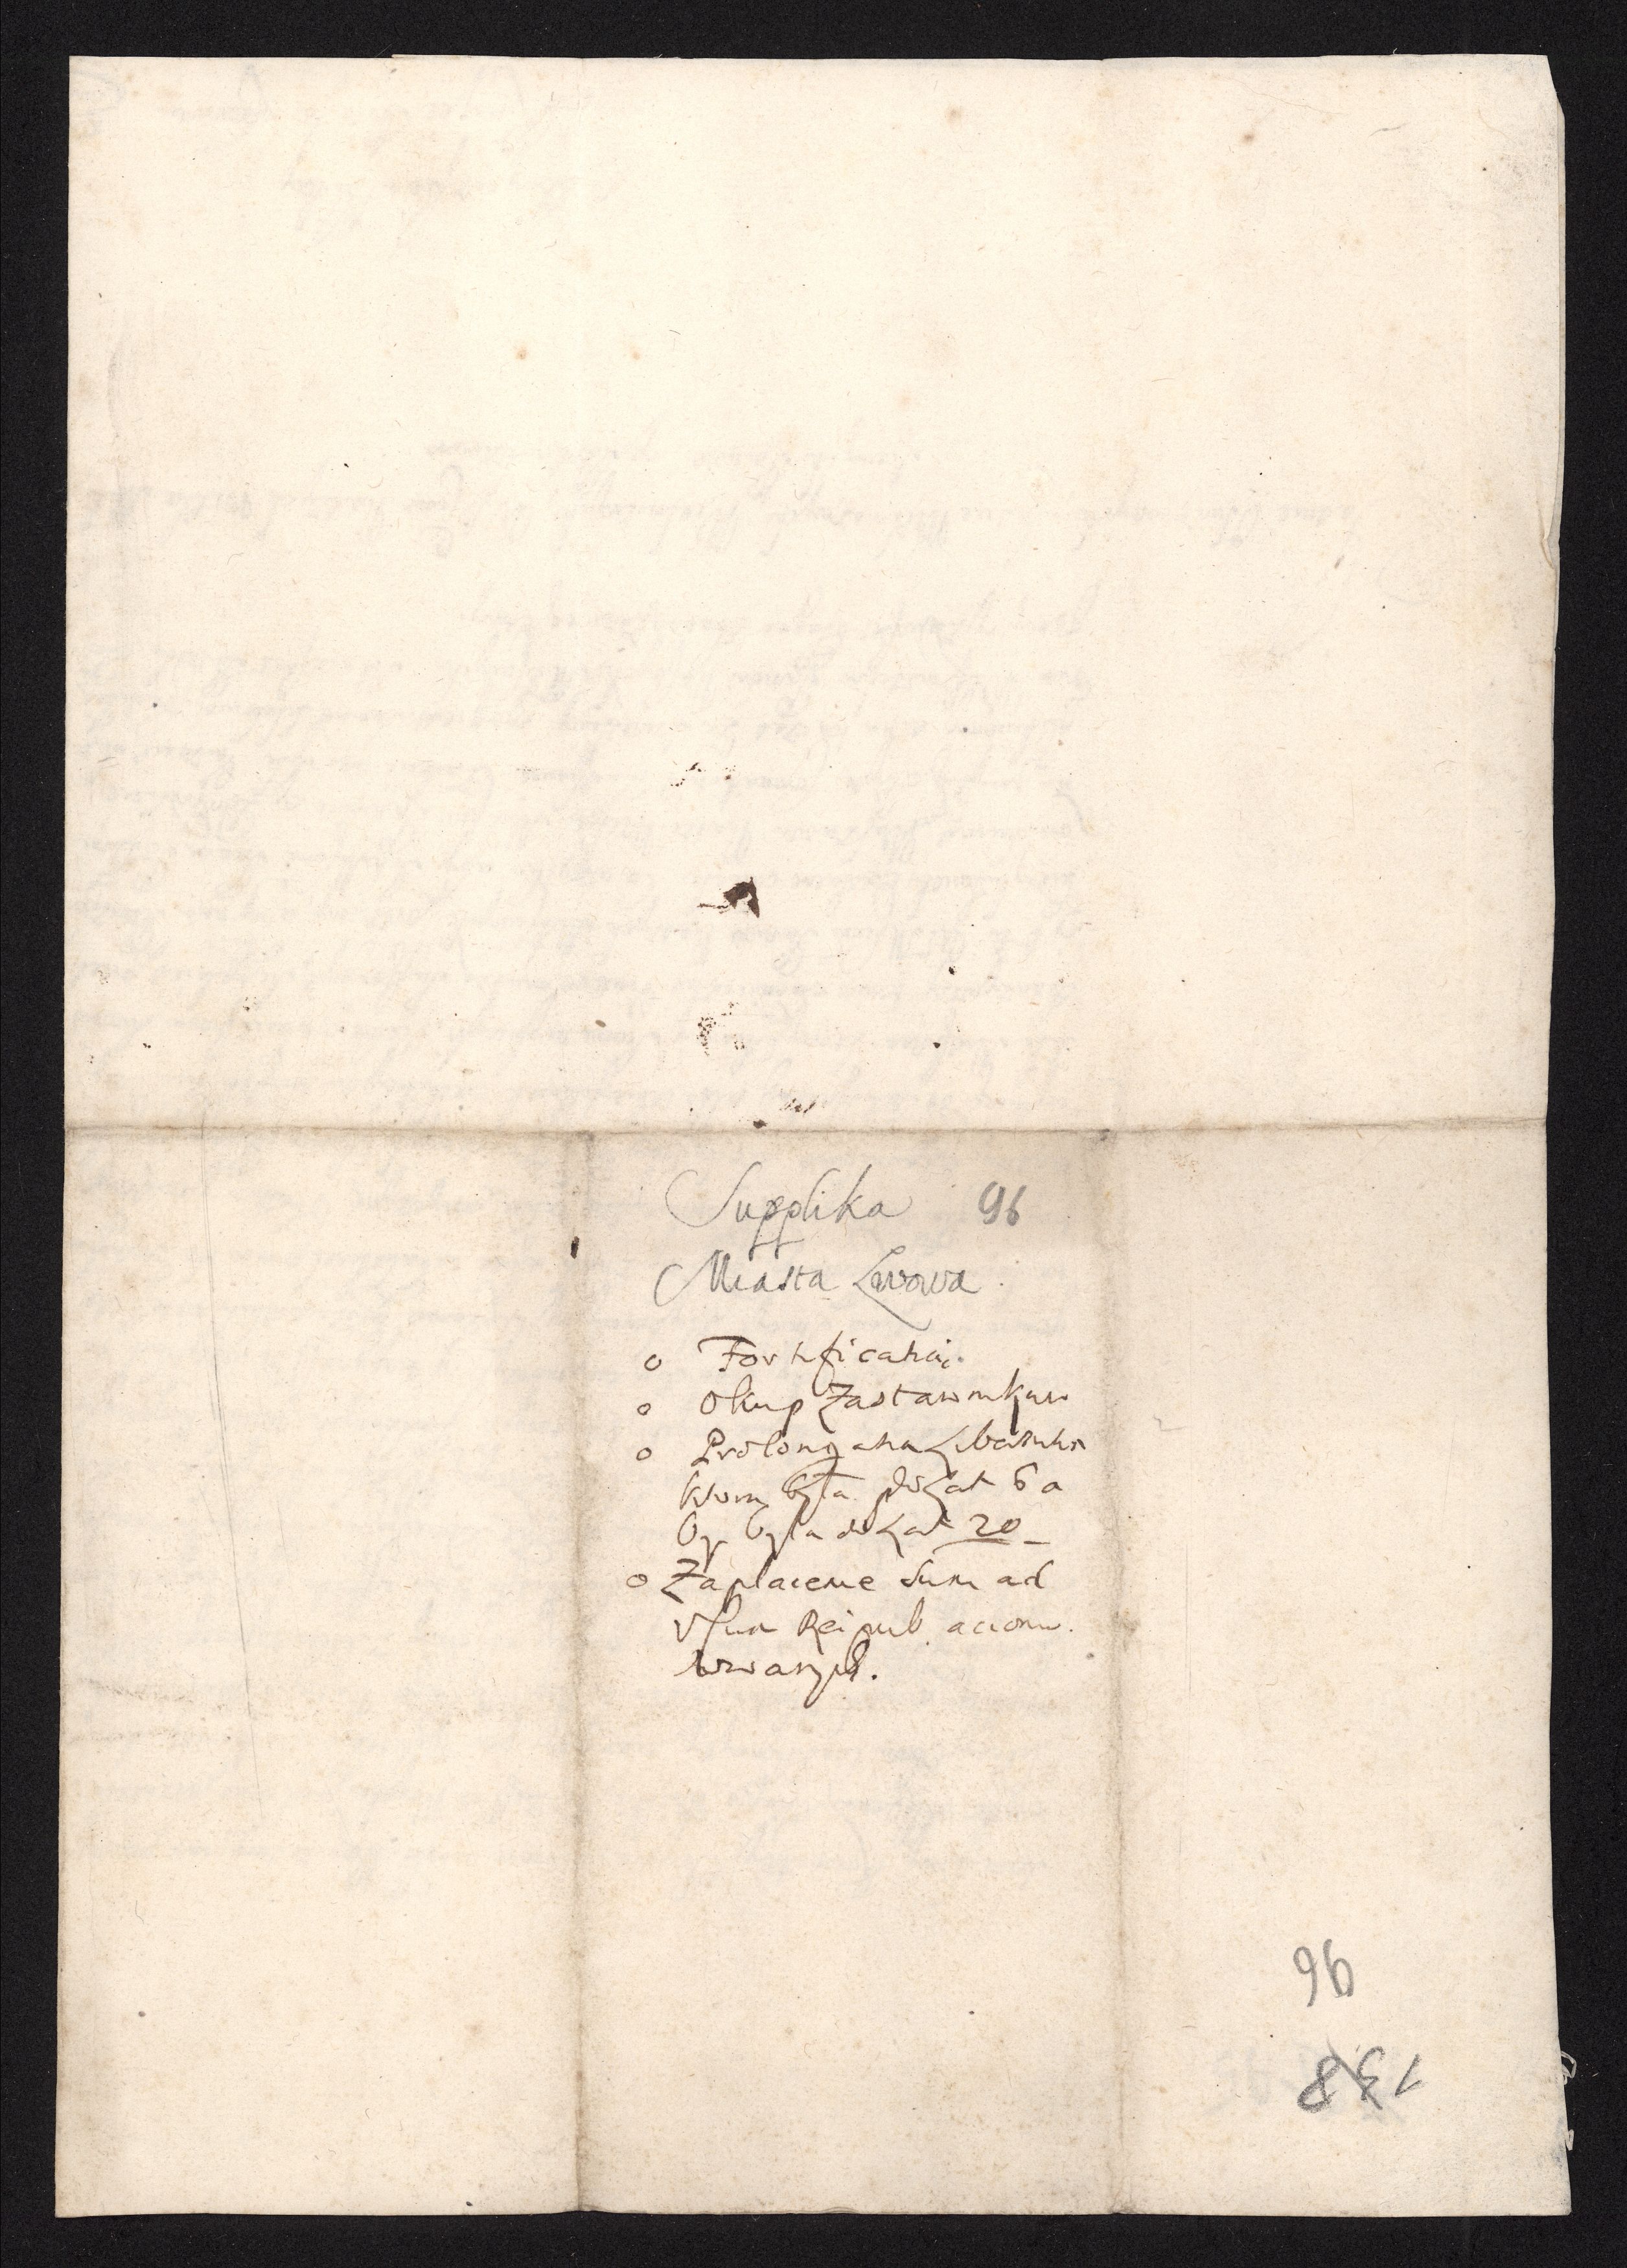 Supplika 96
Miasta Lwowa.
o Fortificatia.
o Okup Zastawnikuw
o Prolongatia Libertatis
ktora była do lat 6 a
by była do lat 20
o Zaplacenie Sum ad
Usum Reipub. accomo
towanych.
96
138